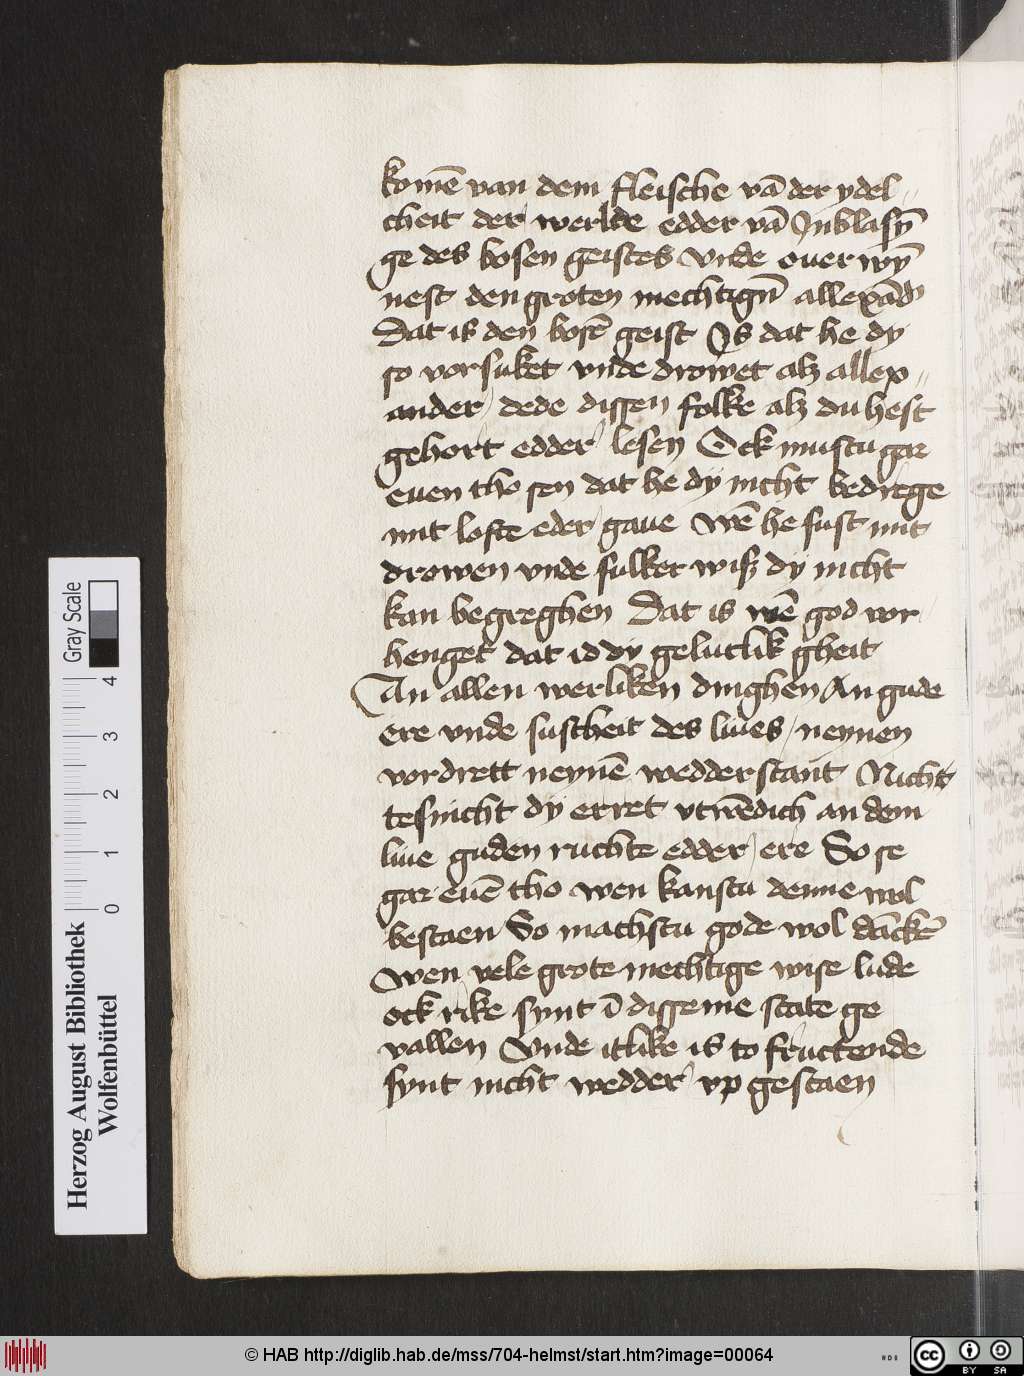 komē van dem fleische vā der ydel〃
cheit der werlde edder vā Inblasȳ
ge des bosen geistes vnde ouer wȳ
nest den groten mechtigē allexādr
Dat is den bosē geist Is dat he dy
so vorsuket vnde drowet alz allex〃
ander dede dissen folke alz du hest
gehort edder lesen Ock mustu gar
euen tho sen dat he dÿ nicht bedrege
mit lofte eder gaue wē he sust mit
drowen vnde sulker wiß dÿ nicht
kan begreghen Dat is wē god vor
henget dat id dÿ geluclik gheit
An allen werliken dinghen An gude
ere vnde suscheit des liues neynen
vordrett neynē wedderstant Nicht
tesnicht dÿ erret vtwēdich an dem
liue guden ruchte edder ere So se
gar euē tho wen kanstu denne wol
bestaen So machstu gode wol dāckē
wen vele grote mechtige wise lude
ock rike synt ī disseme state ge
vallen Vnde itlike is to fructende
synt nicht wedder vp gestaen
Gray Scale
0 1 2 3 4
Herzog August Bibliothek
Wolfenbüttel
© HAB http://diglib.hab.de/mss/704-helmst/start.htm?image=00064
cc BY SA